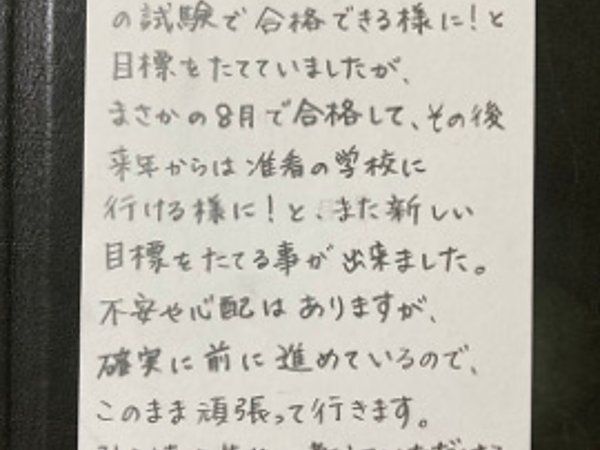 の試験で合格できる様に!と
目標をたてていましたが、
まさかの8月で合格して、その後
来年からは准看の学校に
行ける様に!と、また新しい
目標をたてる事が出来ました。
不安や心配はありますが、
確実に前に進めているので、
このまま頑張って行きます。